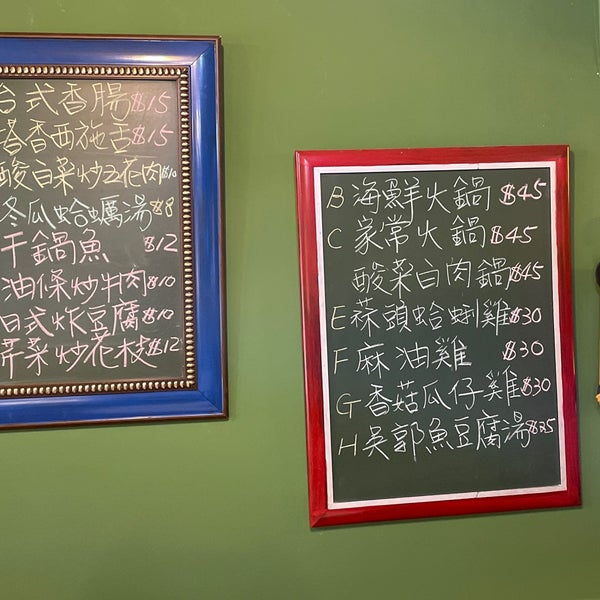 台式香腸$15
塔香西施舌$15
酸白菜炒五花肉$10
冬瓜蛤蠣湯$8
干鍋魚 $12
油條炒牛肉$10
日式炸豆腐$10
芹菜炒花枝$12
B 海鮮火鍋 $45
C 家常火鍋 $45
酸菜白肉鍋$45
E 菜頭蛤蜊雞$30
F 麻油雞 $30
G 香菇瓜仔雞$30
H 吳郭魚豆腐湯$25